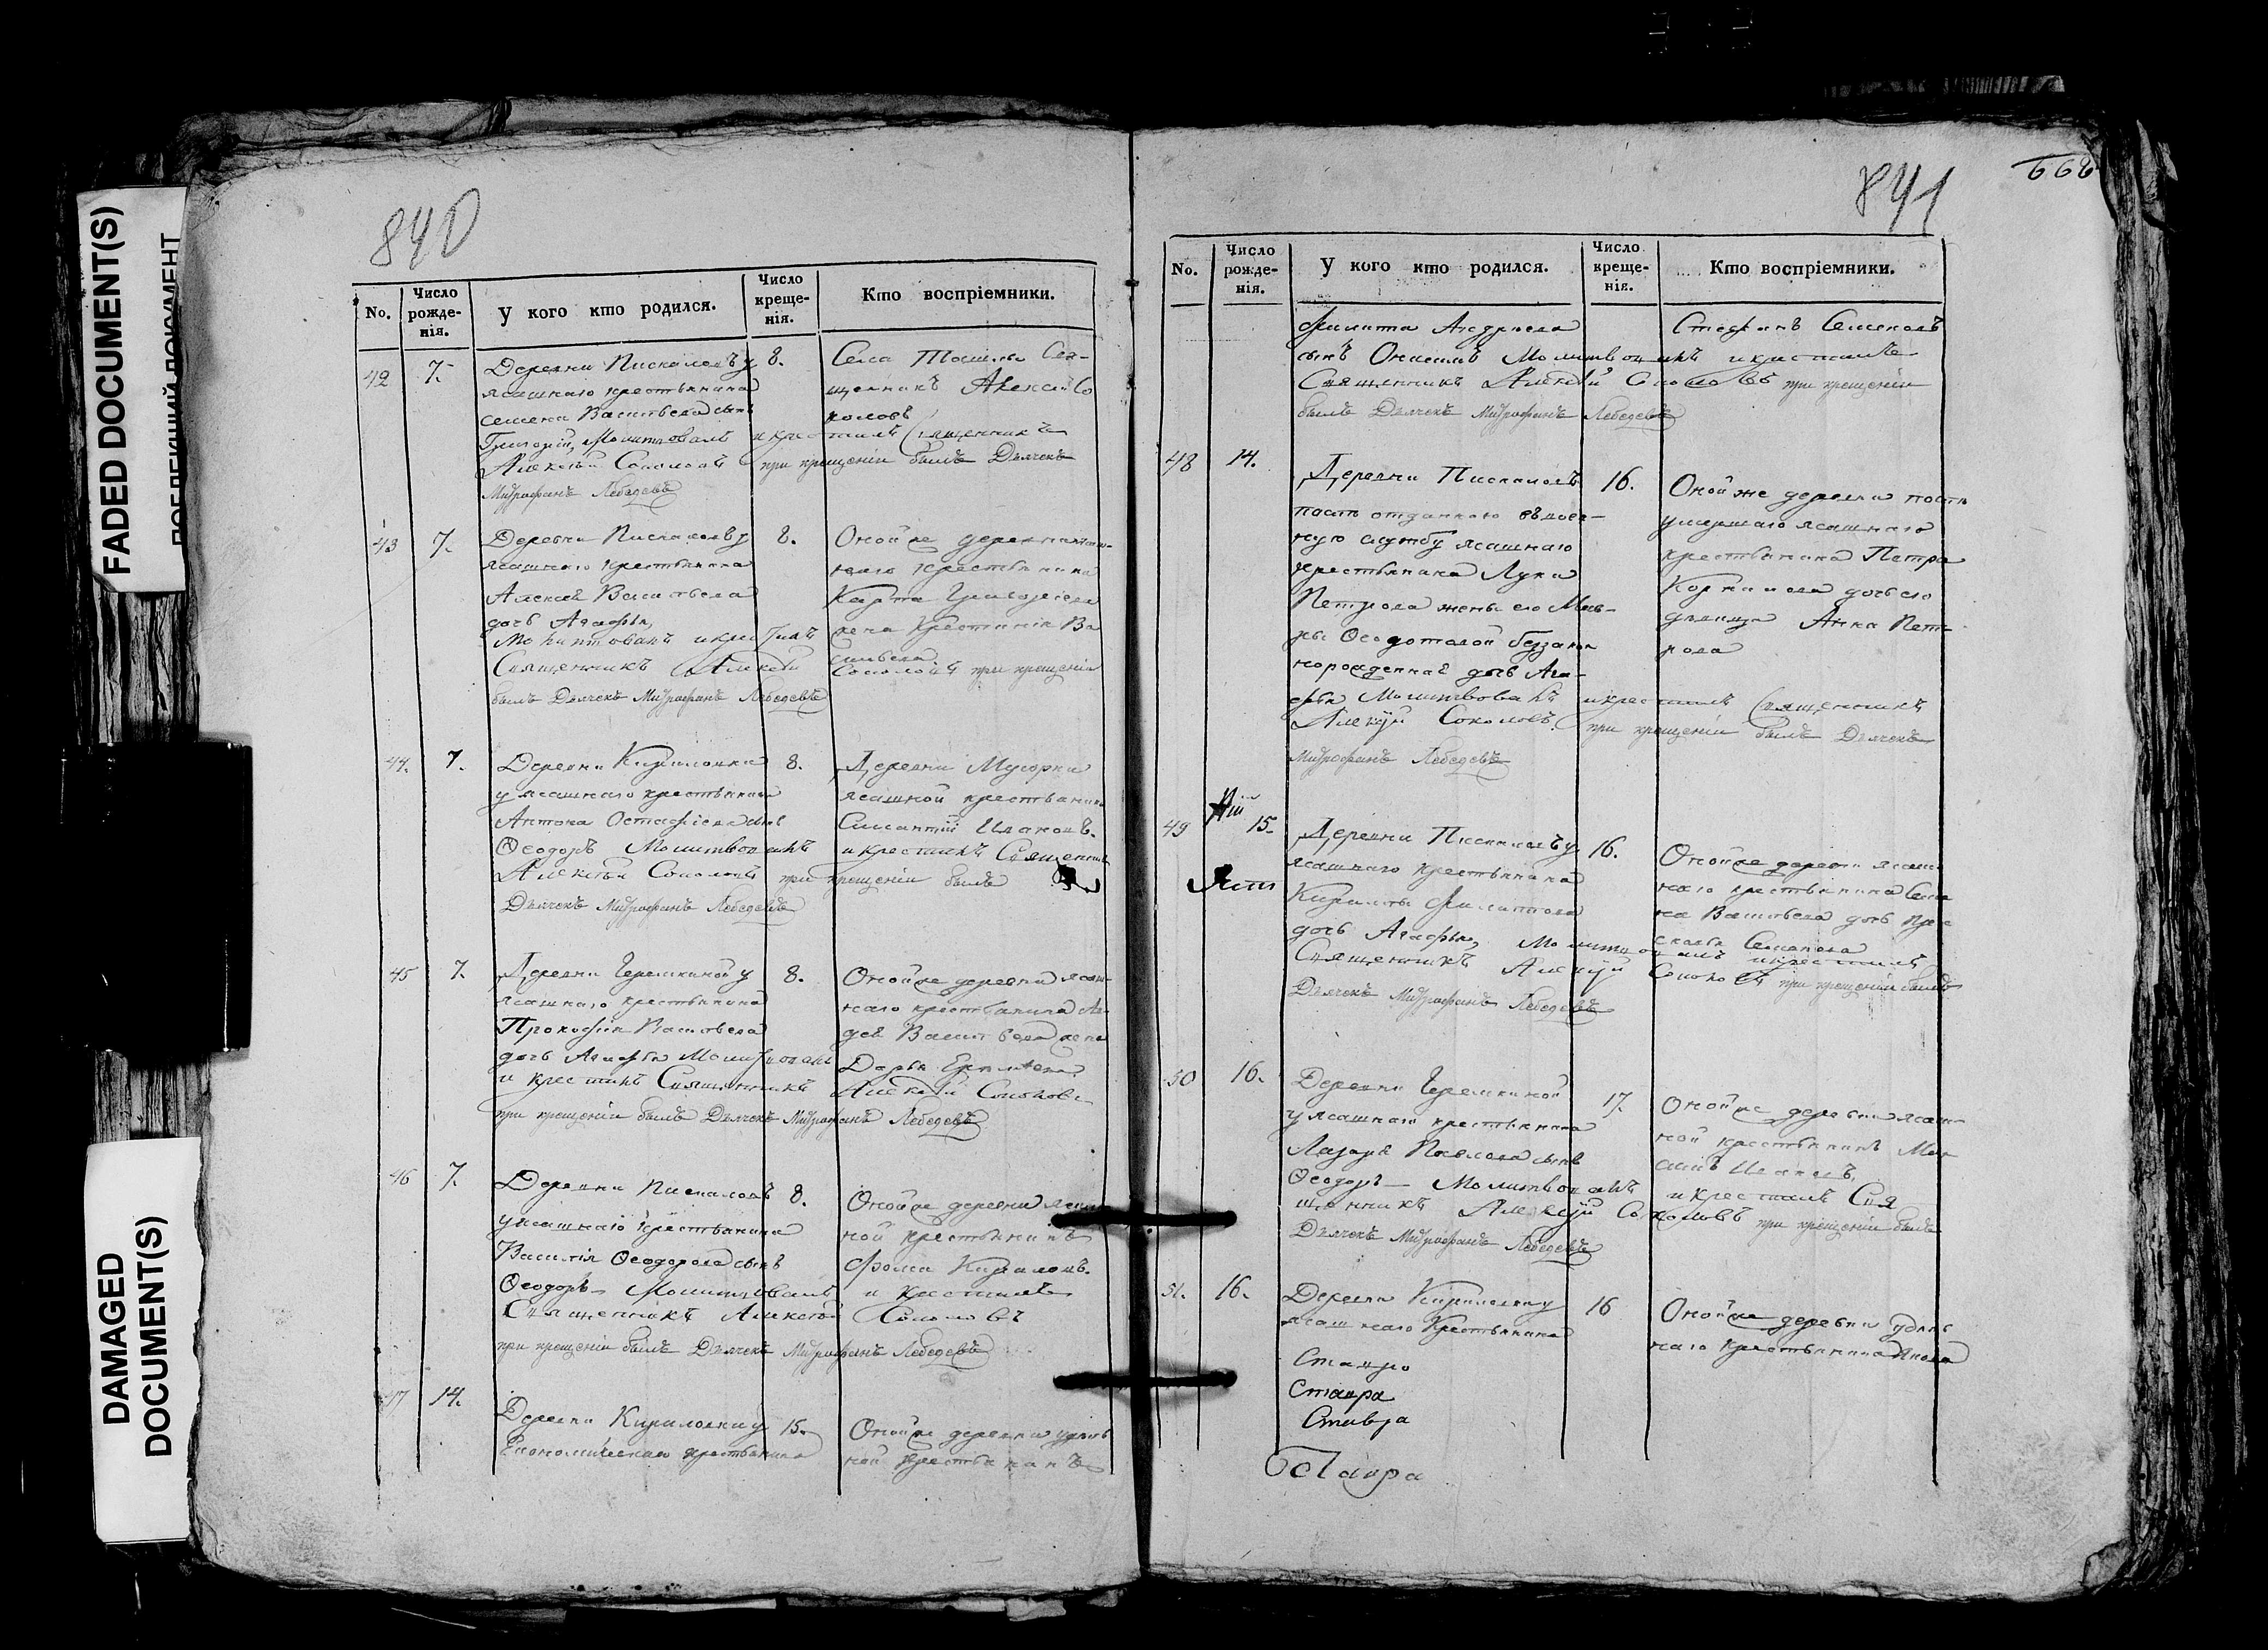 FADED DOCUMENT(S)
DAMAGED
DOCUMENT(S)
840
No.
Число рожде-нія.
У кого кто родился.
Число креще-нія.
Кто воспріемники.
42
7.
Деревни Пискаловъ у
ясашнаго крестьянина
семена Васильева сынъ
Григорій, Молитвовалъ и крестилъ Священникъ
Алексѣй Соколовъ при крещеніи былъ Дьячекъ
Митрофанъ Лебедевъ
8.
Села Свя-
щенникъ Алексѣй Со
коловъ
43
7.
Деревни Пискаловъ у
ясашнаго крестьянина
Алексѣя Васильева
дочь Агафья,
Молитвовалъ и крестилъ
Священникъ Алексѣй Соколовъ при крещеніи
былъ Дьячекъ Митрофанъ Лебедевъ
8.
Оной же деревни
крестьянина
Карпа Григорьева
жена Ва
сильева
44.
7.
Деревни Кириловки
у ясашнаго крестьянина
Антона Остафіева сынъ
Ѳеодоръ Молитвовалъ и крестилъ Священникъ
Алексѣй Соколовъ при крещеніи былъ
Дьячекъ Митрофанъ Лебедевъ
8.
Деревни Мусорки
ясашной крестьянинъ
Ивановъ.
45
7.
Деревни Черемкиной у
ясашнаго крестьянина
Прокофія Васильева
дочь Агафья Молитвовалъ
и крестилъ Священникъ Алексѣй Соколовъ
при крещеніи былъ Дьячекъ Митрофанъ Лебедевъ
8.
Оной же деревни ясаш-
наго крестьянина
Васильева жена
Дарья
46
7.
Деревни Пискаловъ
у ясашнаго крестьянина
Василія Ѳеодорова сынъ
Ѳеодоръ Молитвовалъ и крестилъ
Священникъ Алексѣй Соколовъ
при крещеніи былъ Дьячекъ Митрофанъ Лебедевъ
8.
Оной же деревни ясаш-
ной крестьянинъ
Фома Кириловъ.
47
14.
Деревни Кириловки у
Економическаго крестьянина
15.
Оной же деревни удѣль
ной крестьянинъ
841
668
No.
Число рожде-нія.
У кого кто родился.
Число креще-нія.
Кто воспріемники.
Филипа Андреева
сынъ Онисимъ Молитвовалъ и крестилъ
Священникъ Алексѣй Соколовъ при крещеніи
былъ Дьячекъ Митрофанъ Лебедевъ
Стефанъ Семеновъ
48
14.
Деревни Пискаловъ
отданнаго въ воен-
ную службу ясашнаго
крестьянина Луки
Петрова жены его Мав-
ры Ѳеодотовой беззакон
норожденная дочь Ага-
фья Молитвовалъ и крестилъ Священникъ
Алексѣй Соколовъ при крещеніи былъ Дьячекъ
Митрофанъ Лебедевъ
16.
Оной же деревни
умершаго ясашнаго
крестьянина Петра
Корнилова дочь его
дѣвица Анна Пет-
рова
49
15.
Деревни Пискаловъ у
ясашнаго крестьянина
Кирилы Филиппова
дочь Агафья, Молитвовалъ и крестилъ
Священникъ Алексѣй Соколовъ при крещеніи былъ
Дьячекъ Митрофанъ Лебедевъ
16.
Оной же деревни ясаш
наго крестьянина Семе
на Васильева дочь Прас
ковья Семенова
50
16.
Деревни Черемкиной
у ясашнаго крестьянина
Лазаря Павлова сынъ
Ѳеодоръ Молитвовалъ и крестилъ Свя
щенникъ Алексѣй Соколовъ при крещеніи былъ
Дьячекъ Митрофанъ Лебедевъ
17.
Оной же деревни ясаш
ной крестьянинъ Мак
симъ Ивановъ,
51.
16.
Деревни Кириловки у
ясашнаго Крестьянина
16
Оной же деревни удѣль
наго крестьянина Якова
Ставро
Ставра
Ставра
Ставра